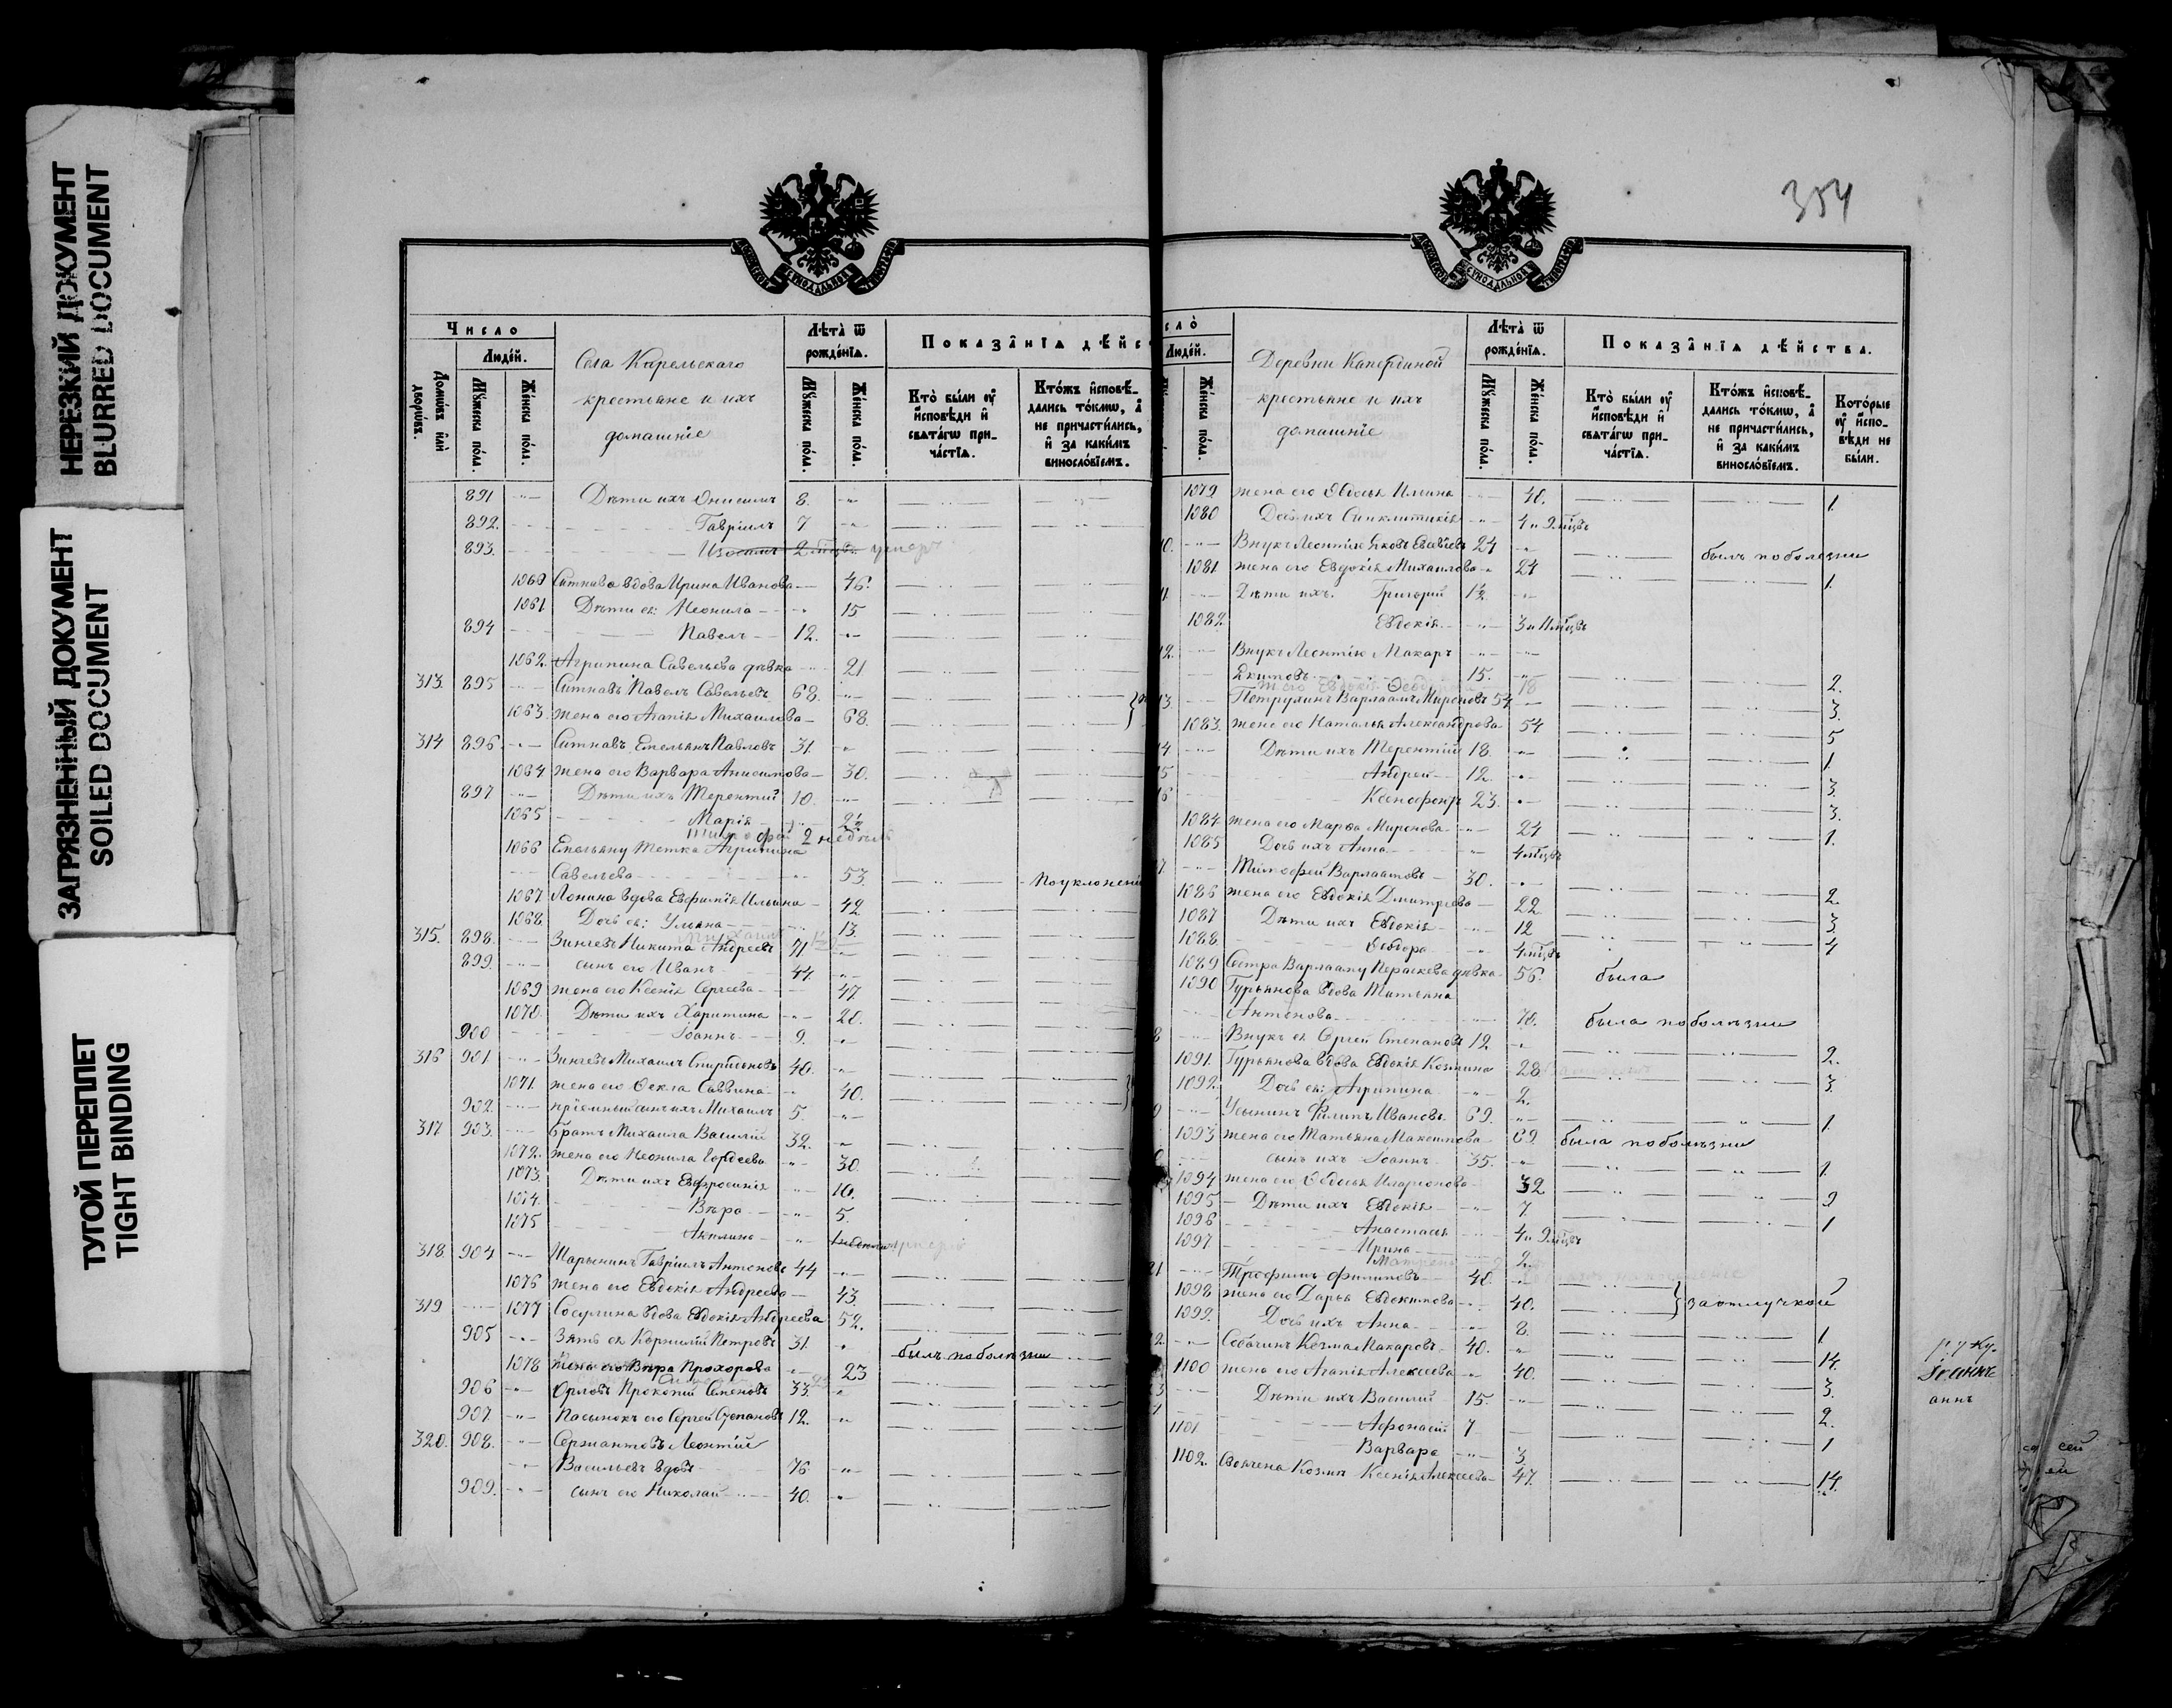 НЕРЕЗКИЙ ДОКУМЕНТ
BLURRED DOCUMENT
ЗАГРЯЗНЕННЫЙ ДОКУМЕНТ
SOILED DOCUMENT
ТУГОЙ ПЕРЕПЛЕТ
TIGHT BINDING
Число
Людей.
Домовъ или дворовъ.
Мꙋжеска пола.
Женска пола.
Села Корельскаго
крестьяне и ихъ
домашніе
Лѣта ѿ рожденїѧ.
Мꙋжеска пола.
Женска пола.
Показанїѧ дѣйс
Кто были ꙋ исповѣди и свѧтагѡ причастїѧ.
Ктожъ исповѣдались токмѡ, а не причастились, и за какимъ винословїемъ.
891 Дѣти ихъ Онисимъ 8.
892. Гавріилъ 7
893. 2 мѣцъ умеръ
1060 Ситнова вдова Ирина Иванова 46.
1061 Дѣти ея: Неонила 15
894 Павелъ 12.
1062. Агрипина Савельева дѣвка 21
313. 895 Ситновъ Павелъ Савельевъ 68.
1063. жена его Агапія Михаилова 68.
314 896 Ситновъ Емельянъ Павловъ 31.
1064. жена его Варвара Анисимова 30.
897 Дѣти ихъ Терентій 10.
1065 Марія 2½
Тимофей 2 недѣль
1066 Емельяну тетка Агрипина
Савельева 53. по уклоненію
1067 Лонина вдова Евфимія Ильина 42
1068. Дочь ея: Ульяна 13
315. 898. Зинчевъ Никита Андреевъ 71
899. сынъ его Иванъ 44.
1069 жена его Ксенія Сергеева 47.
1070. Дѣти ихъ Харитина 20.
900 Іоаннъ 9.
316 901 Зинчевъ Михаилъ Спиридоновъ 40.
1071. жена его Ѳекла Саввина 40.
902. пріемный сынъ ихъ Михаилъ 5.
317 903. братъ Михаила Василій 32.
1072. жена его Неонила Гордеева 30.
1073. Дѣти ихъ Евфросинія 10.
1074. Вѣра 5.
1075 Акилина
318. 904 Шарынинъ Гавріилъ Антоновъ 44
1076 жена его Евдокія Андреева 43.
319 1077 вдова Евдокія Андреева 52.
905 Зять ея Корнилій Петровъ 31. былъ по болѣзни
1078 жена его Вѣра Прохорова 23
906 Орловъ Прокопій Семеновъ 33.
907. Пасынокъ его Сергей Степановъ 12.
320. 908. Сержантовъ Леонтій
Васильевъ вдовъ 76
909. сынъ его Николай 40.
354
сло
Людей.
Женска пола.
Деревни
крестьяне и ихъ
домашніе
Лѣта ѿ рожденїѧ.
Мꙋжеска пола.
Женска пола.
Показанїѧ дѣйства.
Кто были ꙋ исповѣди и свѧтагѡ причастїѧ.
Ктожъ исповѣдались токмѡ, а не причастились, и за какимъ винословїемъ.
Которые ꙋ исповѣди не были.
1079 жена его Ѳедосья Ильина 40. 1.
1080 Дочь ихъ Синклитикія 4 и 9 мѣцъ
0. Внукъ Леонтія Яковъ 24 былъ по болезни
1081 жена его Евдокія Михаилова 24 1.
1. Дѣти ихъ. Григорій 1½
1082. Евдокія 3 и 11 мѣцъ
12. Внукъ Леонтію Макаръ
Екимовъ 15. 2.
13 Петрухинъ Варлаамъ Мироновъ 54 3.
1083. жена его Наталья Александрова 54 5
14 Дѣти ихъ Терентій 18. 1.
15 Андрей 12. 3.
16 Ксенофонтъ 23. 3.
1084 жена его Марѳа Миронова 24 1.
1085 Дочь ихъ Анна 4 мѣцъ
17. Тимофей Варлаамовъ 30. 2.
1086 жена его Евдокія Дмитріева 22 3
1087 Дѣти ихъ Евдокія 12 4
1088. Ѳедора 4 мѣцъ
1089 Сестра Варлааму Параскева дѣвка 56. была
1090 Гурьянова вдова Татьяна
Антонова 70. была по болѣзни
8 Внукъ ея Сергей Степановъ 12 2.
1091. Гурьянова вдова Евдокія Козмина 28 3.
1092. Дочь ея: Агрипина 2.
9 Усынинъ Филипъ Ивановъ 69. 1.
1093 жена его Татьяна Максимова 69 была по болѣзни
сынъ ихъ Іоаннъ 35. 1.
1094 жена его Ѳедосья Иларіонова 32 2
1095 Дѣти ихъ Евдокія 7 1
1096 Анастасія 4 и 9 мѣцъ
1097 Ирина 2
Матрена
21 Трофимъ Филиповъ 40.
1098 жена его Дарья Евдокимова 40. за отлучкой
1099. Дочь ихъ Анна 8. 1
2. Собачинъ Козма Макаровъ 40. 14.
1100 жена его Агапія Алексеева 40. 3.
3 Дѣти ихъ Василій 15. 2.
Афонасій 7 1
1101 Варвара 3.
1102. Козмы Ксенія Алексеева 47. 14.